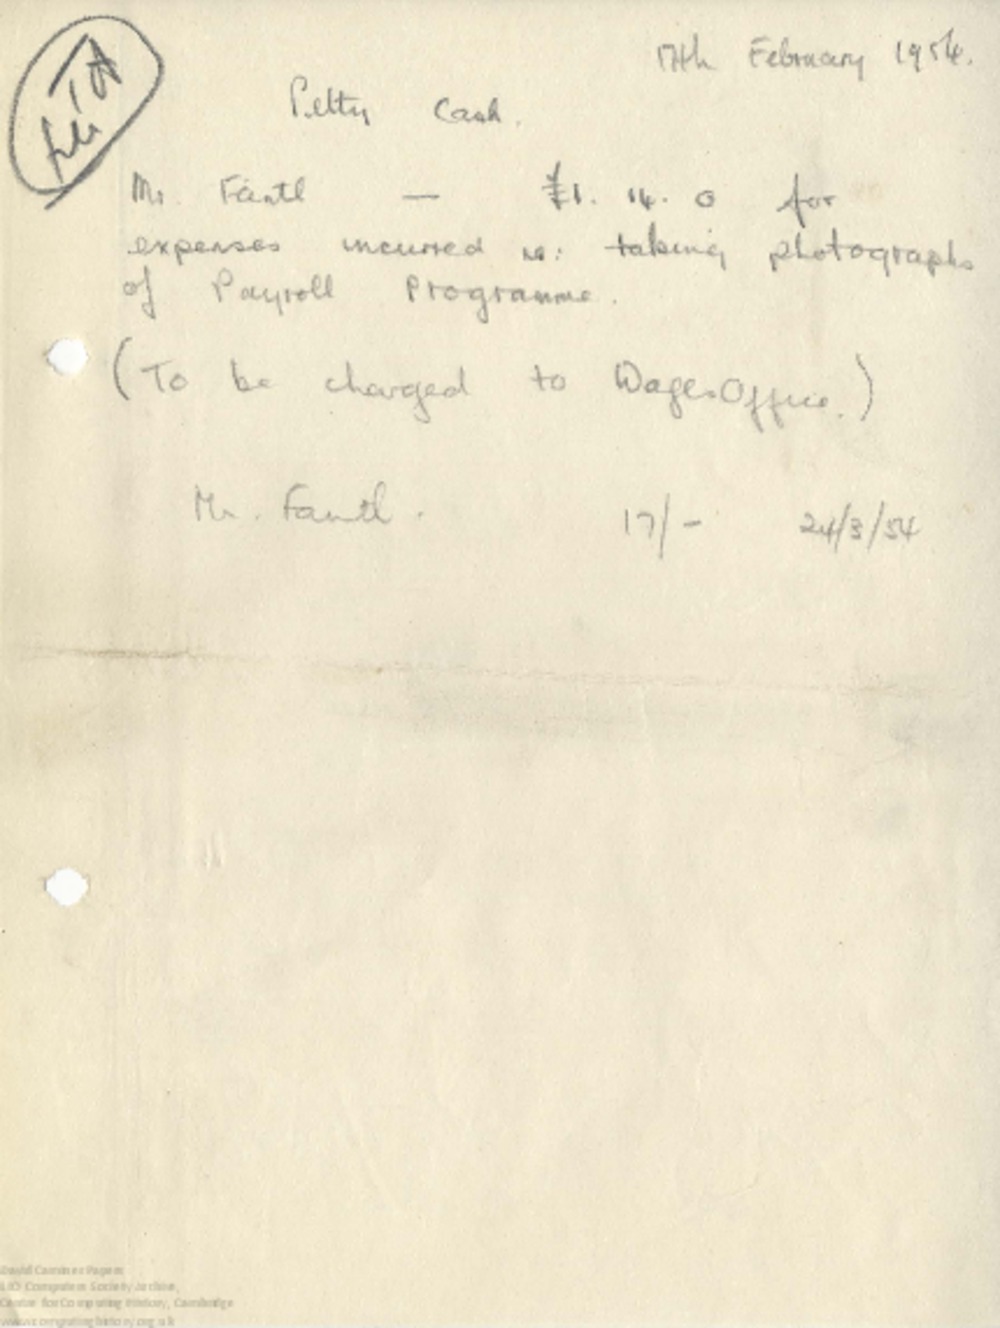 17th February 1954.
Petty Cash.
Mr. Fantl — £1. 14. 0 for
expenses incurred re: taking photographs
of Payroll Programme.
(To be charged to Wages Office.)
Mr. Fantl. 17/- 24/3/54
David Caminer Papers
LEO Computers Society Archive,
Centre for Computing History, Cambridge
www.computinghistory.org.uk